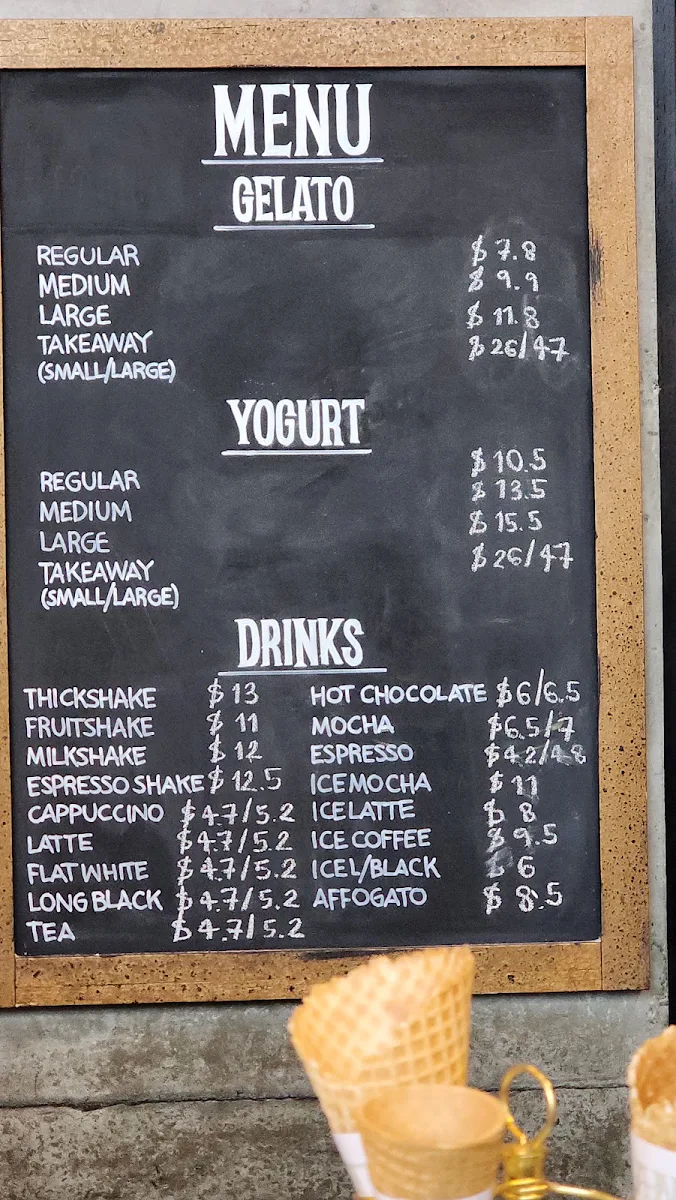 MENU
GELATO
REGULAR $ 7.8
MEDIUM $ 9.9
LARGE $ 11.8
TAKEAWAY $ 26/47
(SMALL/LARGE)
YOGURT
REGULAR $ 10.5
MEDIUM $ 13.5
LARGE $ 15.5
TAKEAWAY $ 26/47
(SMALL/LARGE)
DRINKS
THICKSHAKE $ 13 HOT CHOCOLATE $ 6/6.5
FRUITSHAKE $ 11 MOCHA $ 6.5/7
MILKSHAKE $ 12 ESPRESSO $ 4.2/4.8
ESPRESSO SHAKE $ 12.5 ICE MOCHA $ 11
CAPPUCCINO $ 4.7/5.2 ICE LATTE $ 8
LATTE $ 4.7/5.2 ICE COFFEE $ 9.5
FLAT WHITE $ 4.7/5.2 ICE L/BLACK $ 6
LONG BLACK $ 4.7/5.2 AFFOGATO $ 8.5
TEA $ 4.7/5.2